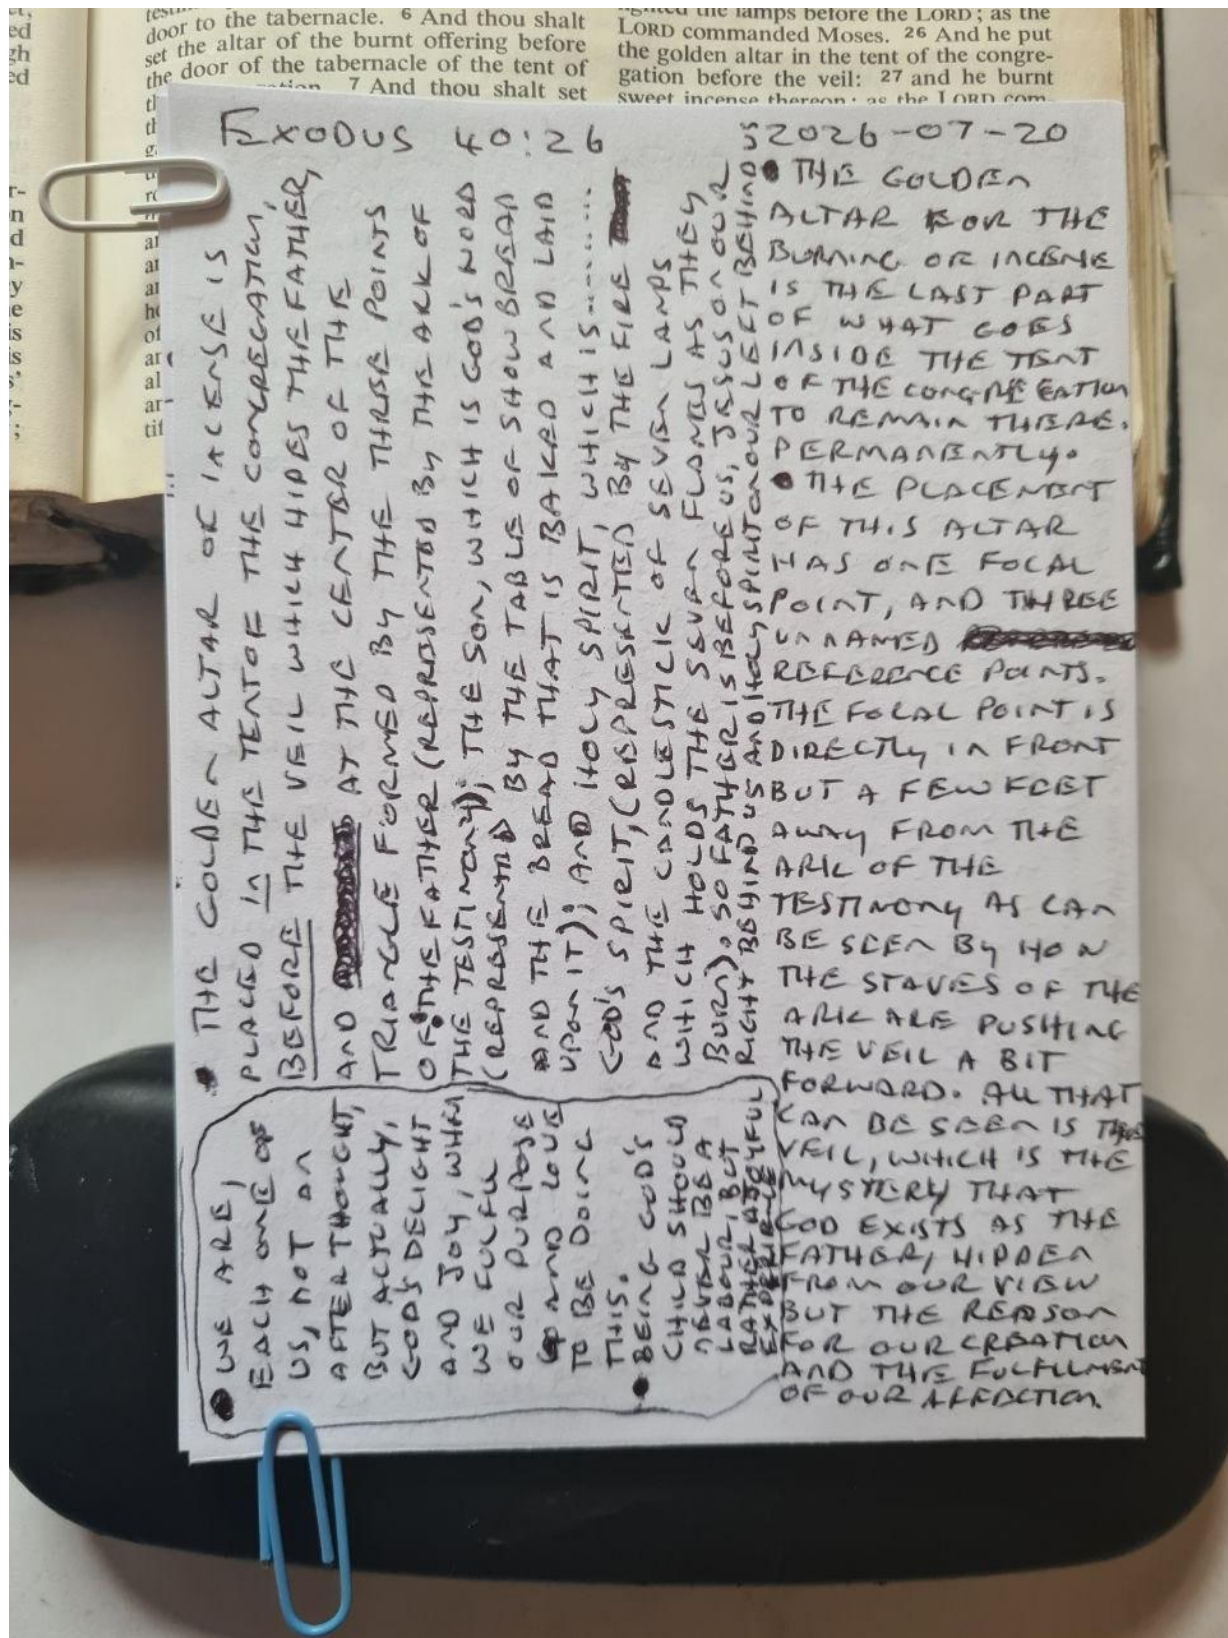 door to the tabernacle. 6 And thou shalt
set the altar of the burnt offering before
the door of the tabernacle of the tent of
7 And thou shalt set
lighted the lamps before the LORD; as the
LORD commanded Moses. 26 And he put
the golden altar in the tent of the congre-
gation before the veil: 27 and he burnt
sweet incense thereon; as the LORD com-
EXODUS 40:26
2026-07-20
• THE GOLDEN
ALTAR FOR THE
BURNING OF INCENE
IS THE LAST PART
OF WHAT GOES
INSIDE THE TENT
OF THE CONGREGATION
TO REMAIN THERE.
PERMANENTLY.
• THE PLACEMENT
OF THIS ALTAR
HAS ONE FOCAL
POINT, AND THREE
UNNAMED
REFERENCE POINTS.
THE FOCAL POINT IS
DIRECTLY IN FRONT
BUT A FEW FEET
AWAY FROM THE
ARK OF THE
TESTIMONY AS CAN
BE SEEN BY HOW
THE STAVES OF THE
ARK ARE PUSHING
THE VEIL A BIT
FORWARD. ALL THAT
CAN BE SEEN IS THE
VEIL, WHICH IS THE
MYSTERY THAT
GOD EXISTS AS THE
FATHER, HIDDEN
FROM OUR VIEW
BUT THE REASON
FOR OUR CREATION
AND THE FULFILLMENT
OF OUR AFFECTION.
• THE GOLDEN ALTAR OF INCENSE IS
PLACED IN THE TENT OF THE CONGREGATION,
BEFORE THE VEIL WHICH HIDES THE FATHER,
AND AT THE CENTER OF THE
TRIANGLE FORMED BY THE THREE POINTS
OF: THE FATHER (REPRESENTED BY THE ARK OF
THE TESTIMONY); THE SON, WHICH IS GOD'S WORD
(REPRESENTED BY THE TABLE OF SHOWBREAD
AND THE BREAD THAT IS BAKED AND LAID
UPON IT); AND HOLY SPIRIT, WHICH IS..........
GOD'S SPIRIT, (REPRESENTED BY THE FIRE
AND THE CANDLESTICK OF SEVEN LAMPS
WHICH HOLDS THE SEVEN FLAMES AS THEY
BURN). SO FATHER IS BEFORE US, JESUS ON OUR
RIGHT BEHIND US AND HOLY SPIRIT ON OUR LEFT BEHIND US
• WE ARE,
EACH ONE OF
US, NOT AN
AFTERTHOUGHT,
BUT ACTUALLY,
GOD'S DELIGHT
AND JOY, WHEN
WE FULFILL
OUR PURPOSE
AND LOVE
TO BE DOING
THIS.
• BEING GOD'S
CHILD SHOULD
NEVER BE A
LABOUR, BUT
RATHER A JOYFUL
EXPERIENCE